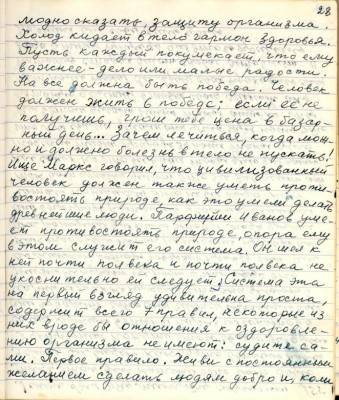 28
можно сказать, защиту организма.
Холод кидает в тело гармон здоровья.
Пусть каждый покумекает, что ему
важнее - дело или малые радости.
На все должна быть победа. Человек
должен жить в победе; если её не
получишь, грош тебе цена в базар-
ный день... Зачем лечиться, когда мож-
но и должно болезнь в тело не пускать!
Ище Маркс говорил, что цивилизованный
человек должен также уметь проти-
востоять природе, как это умели делать
древнейшие люди. Парфирий Иванов уме-
ет противостоять природе, опора ему
в этом служит его система. Он шел к
ней почти полвека и почти полвека не-
укоснительно ей следует. Система эта
на первый взгляд удивительна проста,
содержит всего 7 правил, некоторые из
них вроде бы отношения к оздоровле-
нию организма не имеют: судите са-
ми. Первое правило. Живи с постоянным
желанием сделать людям добро и, коли